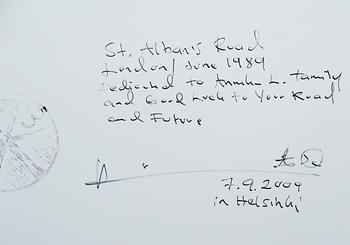 St. Alban's Road
London/June 1989
Dedicated to Annika L. family
and Good Luck to Your Road
and Future
7.9.2009
in Helsinki